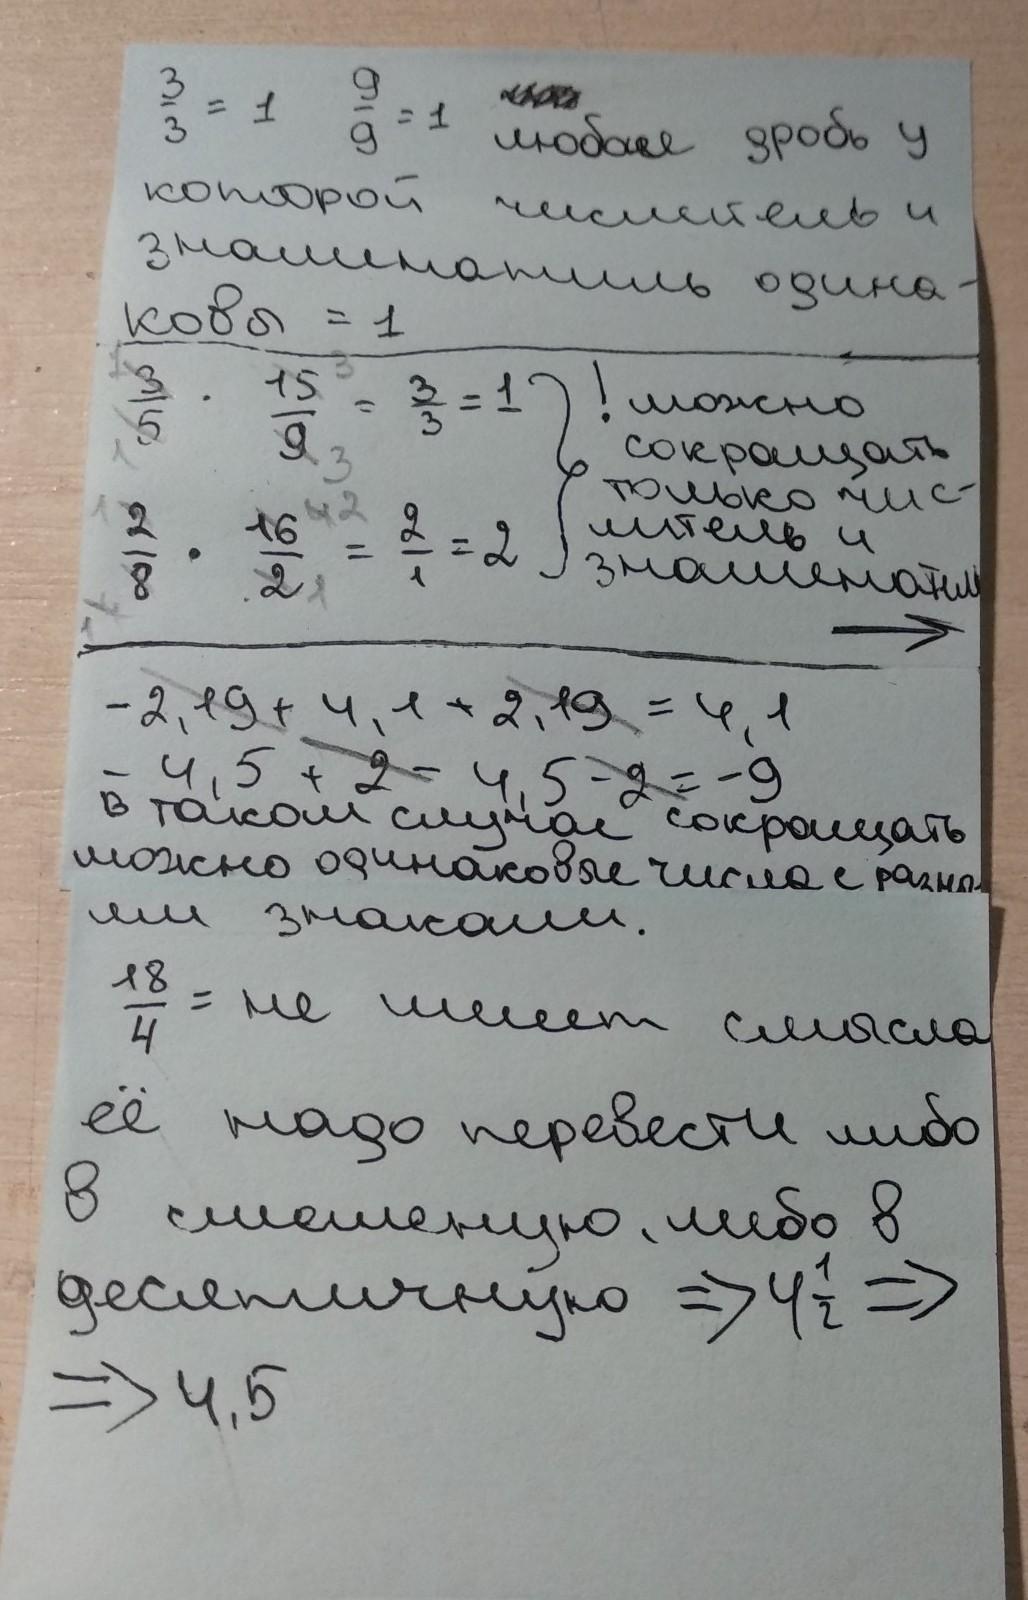 3/3 = 1 9/9 = 1 любая дробь у
которой числитель и
знаменатель одина-
ковы = 1
3/5 · 15/9 = 3/3 = 1 ! можно
сокращать
только чис-
2/8 · 16/2 = 2/1 = 2 литель и
знаменатель
→
-2,19 + 4,1 + 2,19 = 4,1
- 4,5 + 2 - 4,5 - 2 = -9
в таком случае сокращать
можно одинаковые числа с разны-
ми знаками.
18/4 = не имеет смысла
её надо перевести либо
в смешеную, либо в
десятичную => 4 1/2 =>
=> 4,5